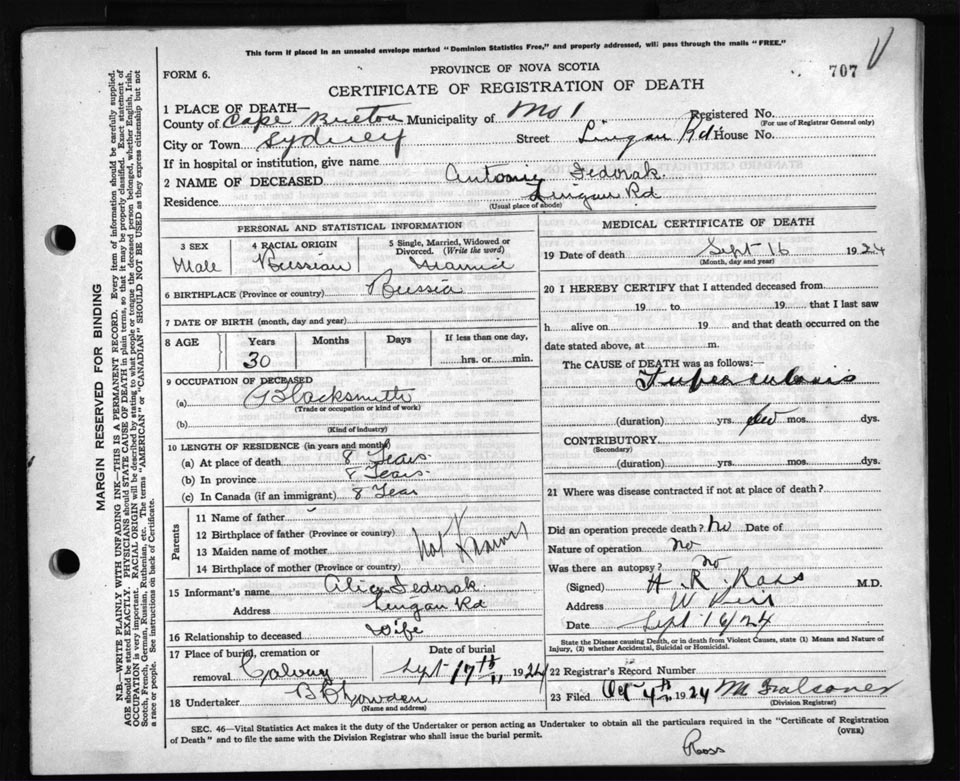 This form if placed in an unsealed envelope marked "Dominion Statistics Free," and properly addressed, will pass through the mails "FREE."
FORM 6.
PROVINCE OF NOVA SCOTIA
707
CERTIFICATE OF REGISTRATION OF DEATH
1 PLACE OF DEATH—
County of Cape Breton Municipality of No 1 Registered No.
(For use of Registrar General only)
City or Town Sydney Street Lingan Rd House No.
If in hospital or institution, give name
2 NAME OF DECEASED Antonie Fedorak
Residence Lingan Rd
(Usual place of abode)
PERSONAL AND STATISTICAL INFORMATION
3 SEX
Male
4 RACIAL ORIGIN
Russian
5 Single, Married, Widowed or Divorced. (Write the word)
Married
6 BIRTHPLACE (Province or country) Russia
7 DATE OF BIRTH (month, day and year)
8 AGE
Years Months Days If less than one day,
30 hrs. or min.
9 OCCUPATION OF DECEASED
(a) Blacksmith
(Trade or occupation or kind of work)
(b)
(Kind of industry)
10 LENGTH OF RESIDENCE (in years and months)
(a) At place of death 8 Years
(b) In province 8 Years
(c) In Canada (if an immigrant) 8 Year
Parents
11 Name of father
12 Birthplace of father (Province or country)
Not Known
13 Maiden name of mother
14 Birthplace of mother (Province or country)
15 Informant's name Alice Fedorak
Address Lingan Rd
16 Relationship to deceased Wife
17 Place of burial, cremation or removal Calvary
Date of burial
Sept 17th 1924
18 Undertaker
(Name and address)
MEDICAL CERTIFICATE OF DEATH
19 Date of death Sept 16 1924
(Month, day and year)
20 I HEREBY CERTIFY that I attended deceased from
19 to 19 that I last saw
h alive on 19 and that death occurred on
date stated above, at m.
The CAUSE of DEATH was as follows:—
Tuberculosis
(duration) yrs. few mos. dys.
CONTRIBUTORY
(Secondary)
(duration) yrs. mos. dys.
21 Where was disease contracted if not at place of death?
Did an operation precede death? No Date of
Nature of operation no
Was there an autopsy? no
(Signed) H. R. Ross M.D.
Address W Pier
Date Sept 16/24
State the Disease causing Death, or in death from Violent Causes, state (1) Means and Nature of Injury, (2) whether Accidental, Suicidal or Homicidal.
22 Registrar's Record Number
23 Filed Oct 4th 1924
(Division Registrar)
SEC. 46—Vital Statistics Act makes it the duty of the Undertaker or person acting as Undertaker to obtain all the particulars required in the "Certificate of Registration
of Death" and to file the same with the Division Registrar who shall issue the burial permit.
(OVER)
Ross
MARGIN RESERVED FOR BINDING
N.B.—WRITE PLAINLY WITH UNFADING INK—THIS IS A PERMANENT RECORD. Every item of information should be carefully supplied.
AGE should be stated EXACTLY. PHYSICIANS should STATE CAUSE OF DEATH in plain terms, so that it may be properly classified. Exact statement of
OCCUPATION is very important. RACIAL ORIGIN will be described by stating to what people or tongue the deceased person belonged, whether English, Irish,
Scotch, French, German, Russian, Ruthenian, etc. The terms "AMERICAN" or "CANADIAN" SHOULD NOT BE USED as they express citizenship but not
a race or people. See instructions on back of Certificate.